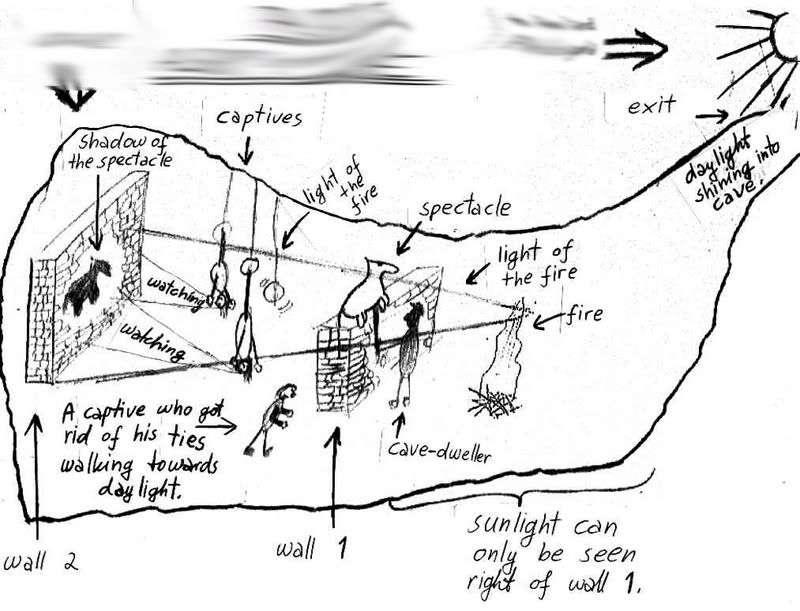 captives
exit
Shadow of
the spectacle
light of
the
fire
spectacle
daylight
shining into
cave.
light of
the fire
fire
watching
watching
A captive who got
rid of his ties
walking towards
daylight.
cave-dweller
wall 2
wall 1
sunlight can
only be seen
right of wall 1.